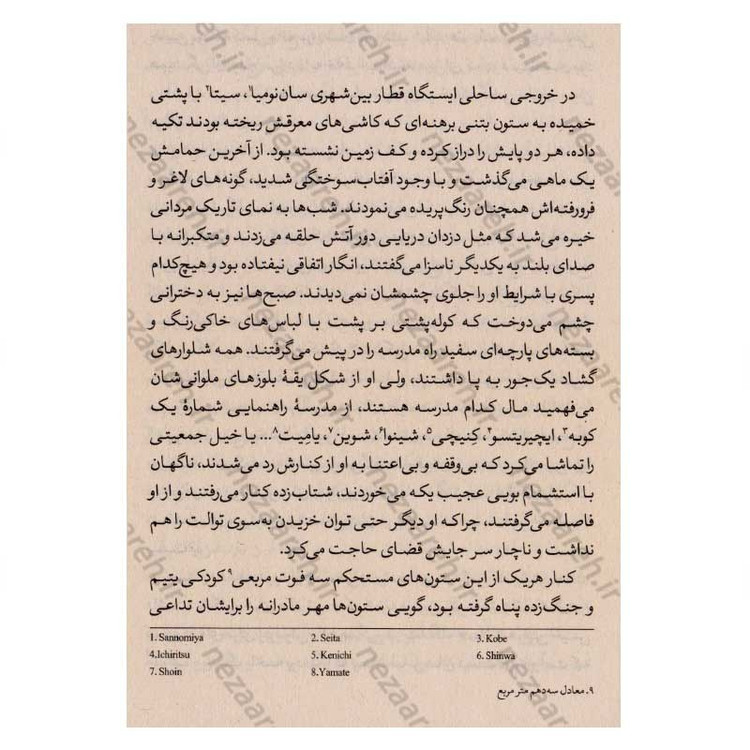 در خروجی ساحلی ایستگاه قطار بین‌شهری سان‌نومیا¹، سیتا² با پشتی
خمیده به ستون بتنی برهنه‌ای که کاشی‌های معرقش ریخته بودند تکیه
داده، هر دو پایش را دراز کرده و کف زمین نشسته بود. از آخرین حمامش
یک ماهی می‌گذشت و با وجود آفتاب‌سوختگی شدید، گونه‌های لاغر و
فرورفته‌اش همچنان رنگ‌پریده می‌نمودند. شب‌ها به نمای تاریک مردانی
خیره می‌شد که مثل دزدان دریایی دور آتش حلقه می‌زدند و متکبرانه با
صدای بلند به یکدیگر ناسزا می‌گفتند، انگار اتفاقی نیفتاده بود و هیچ‌کدام
پسری با شرایط او را جلوی چشمشان نمی‌دیدند. صبح‌ها نیز به دخترانی
چشم می‌دوخت که کوله‌پشتی بر پشت با لباس‌های خاکی‌رنگ و
بسته‌های پارچه‌ای سفید راه مدرسه را در پیش می‌گرفتند. همه شلوارهای
گشاد یک‌جور به پا داشتند، ولی او از شکل یقهٔ بلوزهای ملوانی‌شان
می‌فهمید مال کدام مدرسه هستند، از مدرسهٔ راهنمایی شمارهٔ یک
کوبه³، ایچیریتسو⁴، کِنیچی⁵، شینوا⁶، شوین⁷، یامِیت⁸... یا خیل جمعیتی
را تماشا می‌کرد که بی‌وقفه و بی‌اعتنا به او از کنارش رد می‌شدند، ناگهان
با استشمام بویی عجیب یکه می‌خوردند، شتاب‌زده کنار می‌رفتند و از او
فاصله می‌گرفتند، چراکه او دیگر حتی توان خزیدن به‌سوی توالت را هم
نداشت و ناچار سر جایش قضای حاجت می‌کرد.
کنار هریک از این ستون‌های مستحکم سه فوت مربعی⁹ کودکی یتیم
و جنگ‌زده پناه گرفته بود، گویی ستون‌ها مهر مادرانه را برایشان تداعی
1. Sannomiya 2. Seita 3. Kobe
4.Ichiritsu 5. Kenichi 6. Shinwa
7. Shoin 8.Yamate
۹. معادل سه‌دهم متر مربع
nezaareh.ir